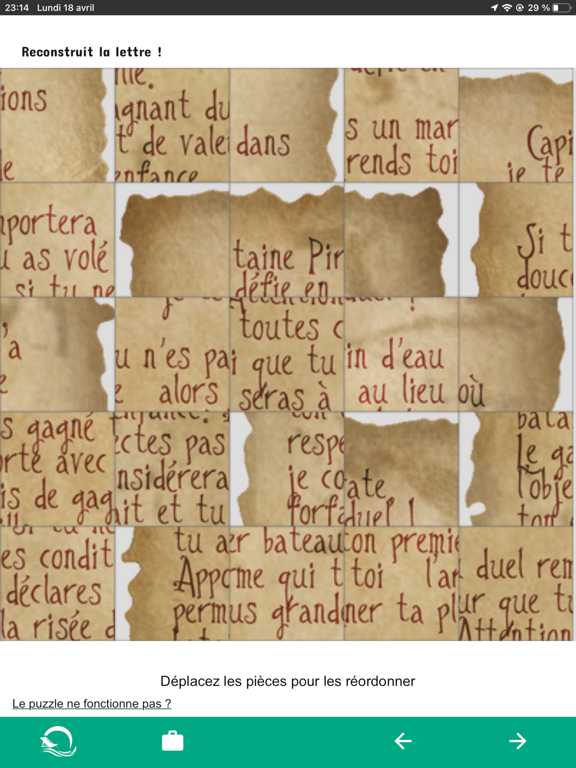 23:14 Lundi 18 avril 29 %
Reconstruit la lettre !
ions
e
lle.
ignant du
t de vale
enfance
dans
défie en
s un mar
rends toi
Capi
je te
portera
u as volé
si tu ne
taine Pir
défie en
Si t
douc
a
e
u n'es pa
e alors
toutes c
i que tu
seras à
in d'eau
au lieu où
s gagné
rte avec
is de gag
ctes pas
nsidérera
ait et tu
respe
je co
forfa
ate,
duel !
bata
le ga
l'obje
ton
es condit
déclares
la risée d
tu a
Appo
permu
r bateau
me qui t
s grand
ton premie
toi l'ar
ner ta pl
duel rem
ur que tu
Attention
Déplacez les pièces pour les réordonner
Le puzzle ne fonctionne pas ?